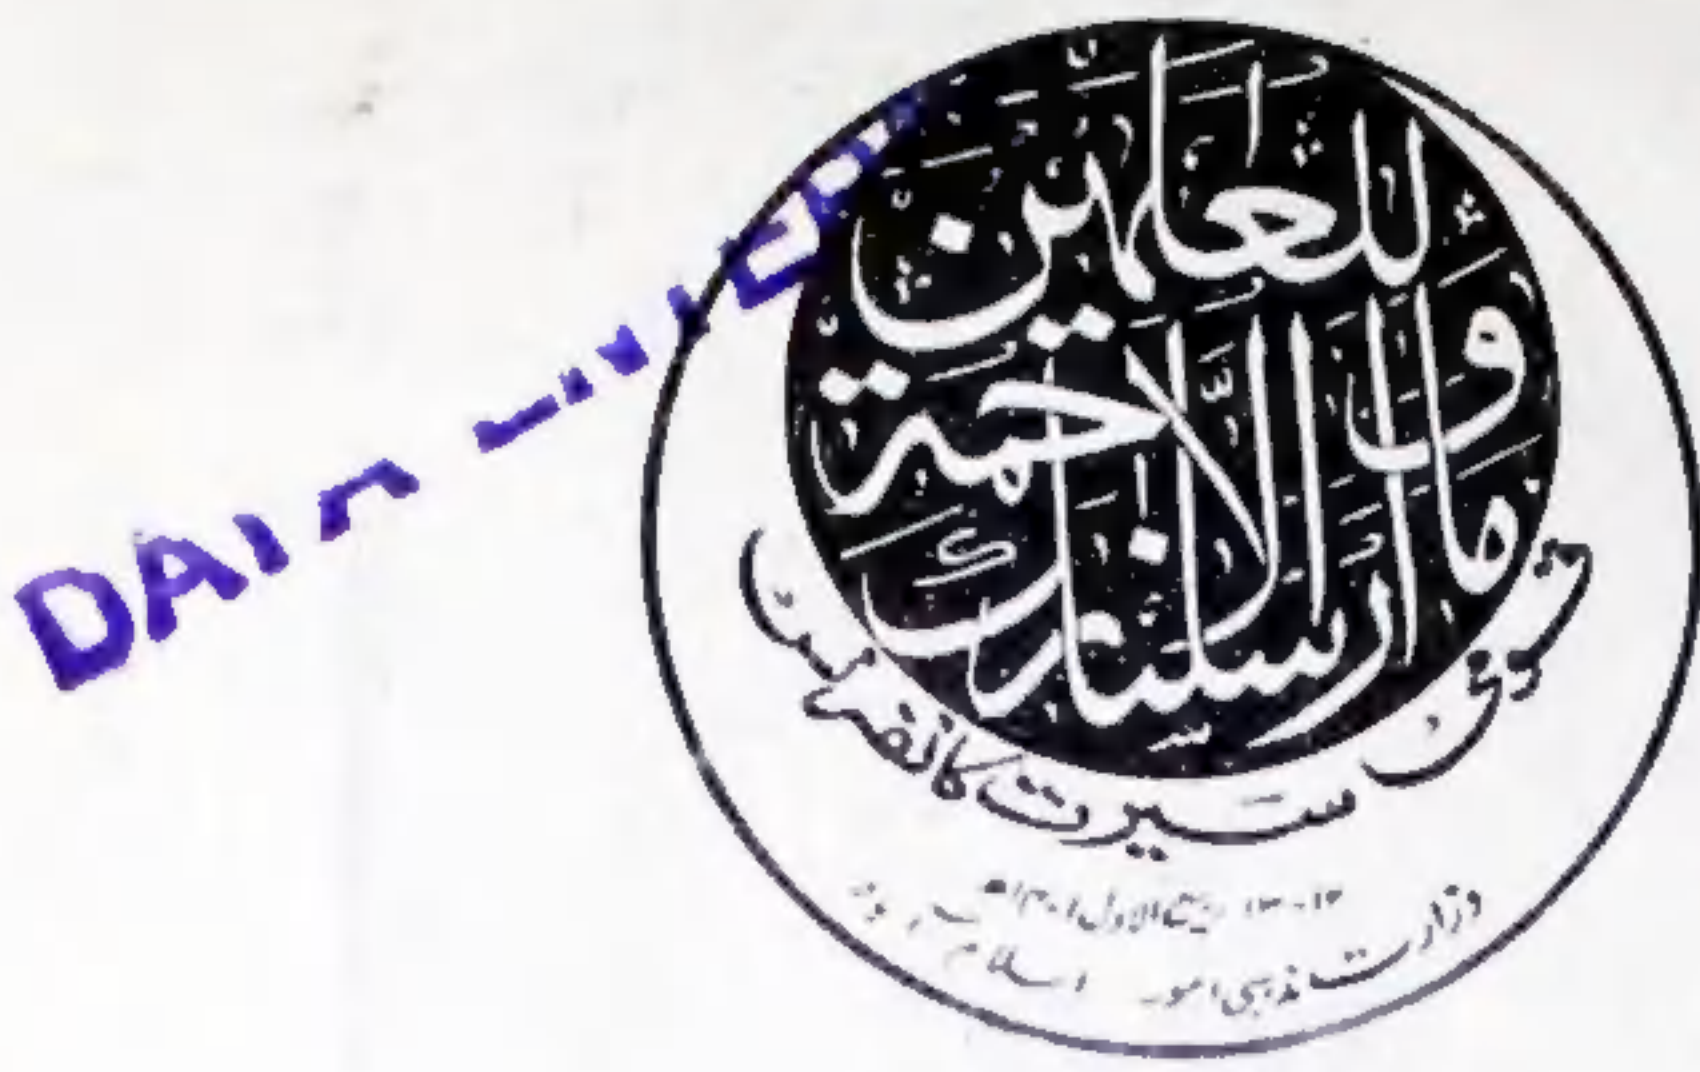 وَمَا أَرْسَلْنَاكَ إِلَّا رَحْمَةً
لِلْعَالَمِينَ
قومی سیرت کانفرنس
۱۲-۱۳ ربیع الاول ۱۴۰۱ھ
وزارت مذہبی امور اسلام آباد
DA